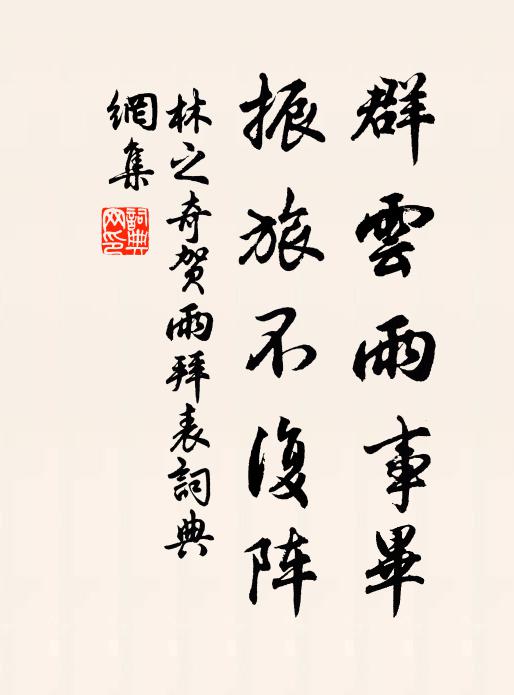 群雲雨事畢
振旅不復阵
林之奇贺雨拜表詞典
網集
詞典网印